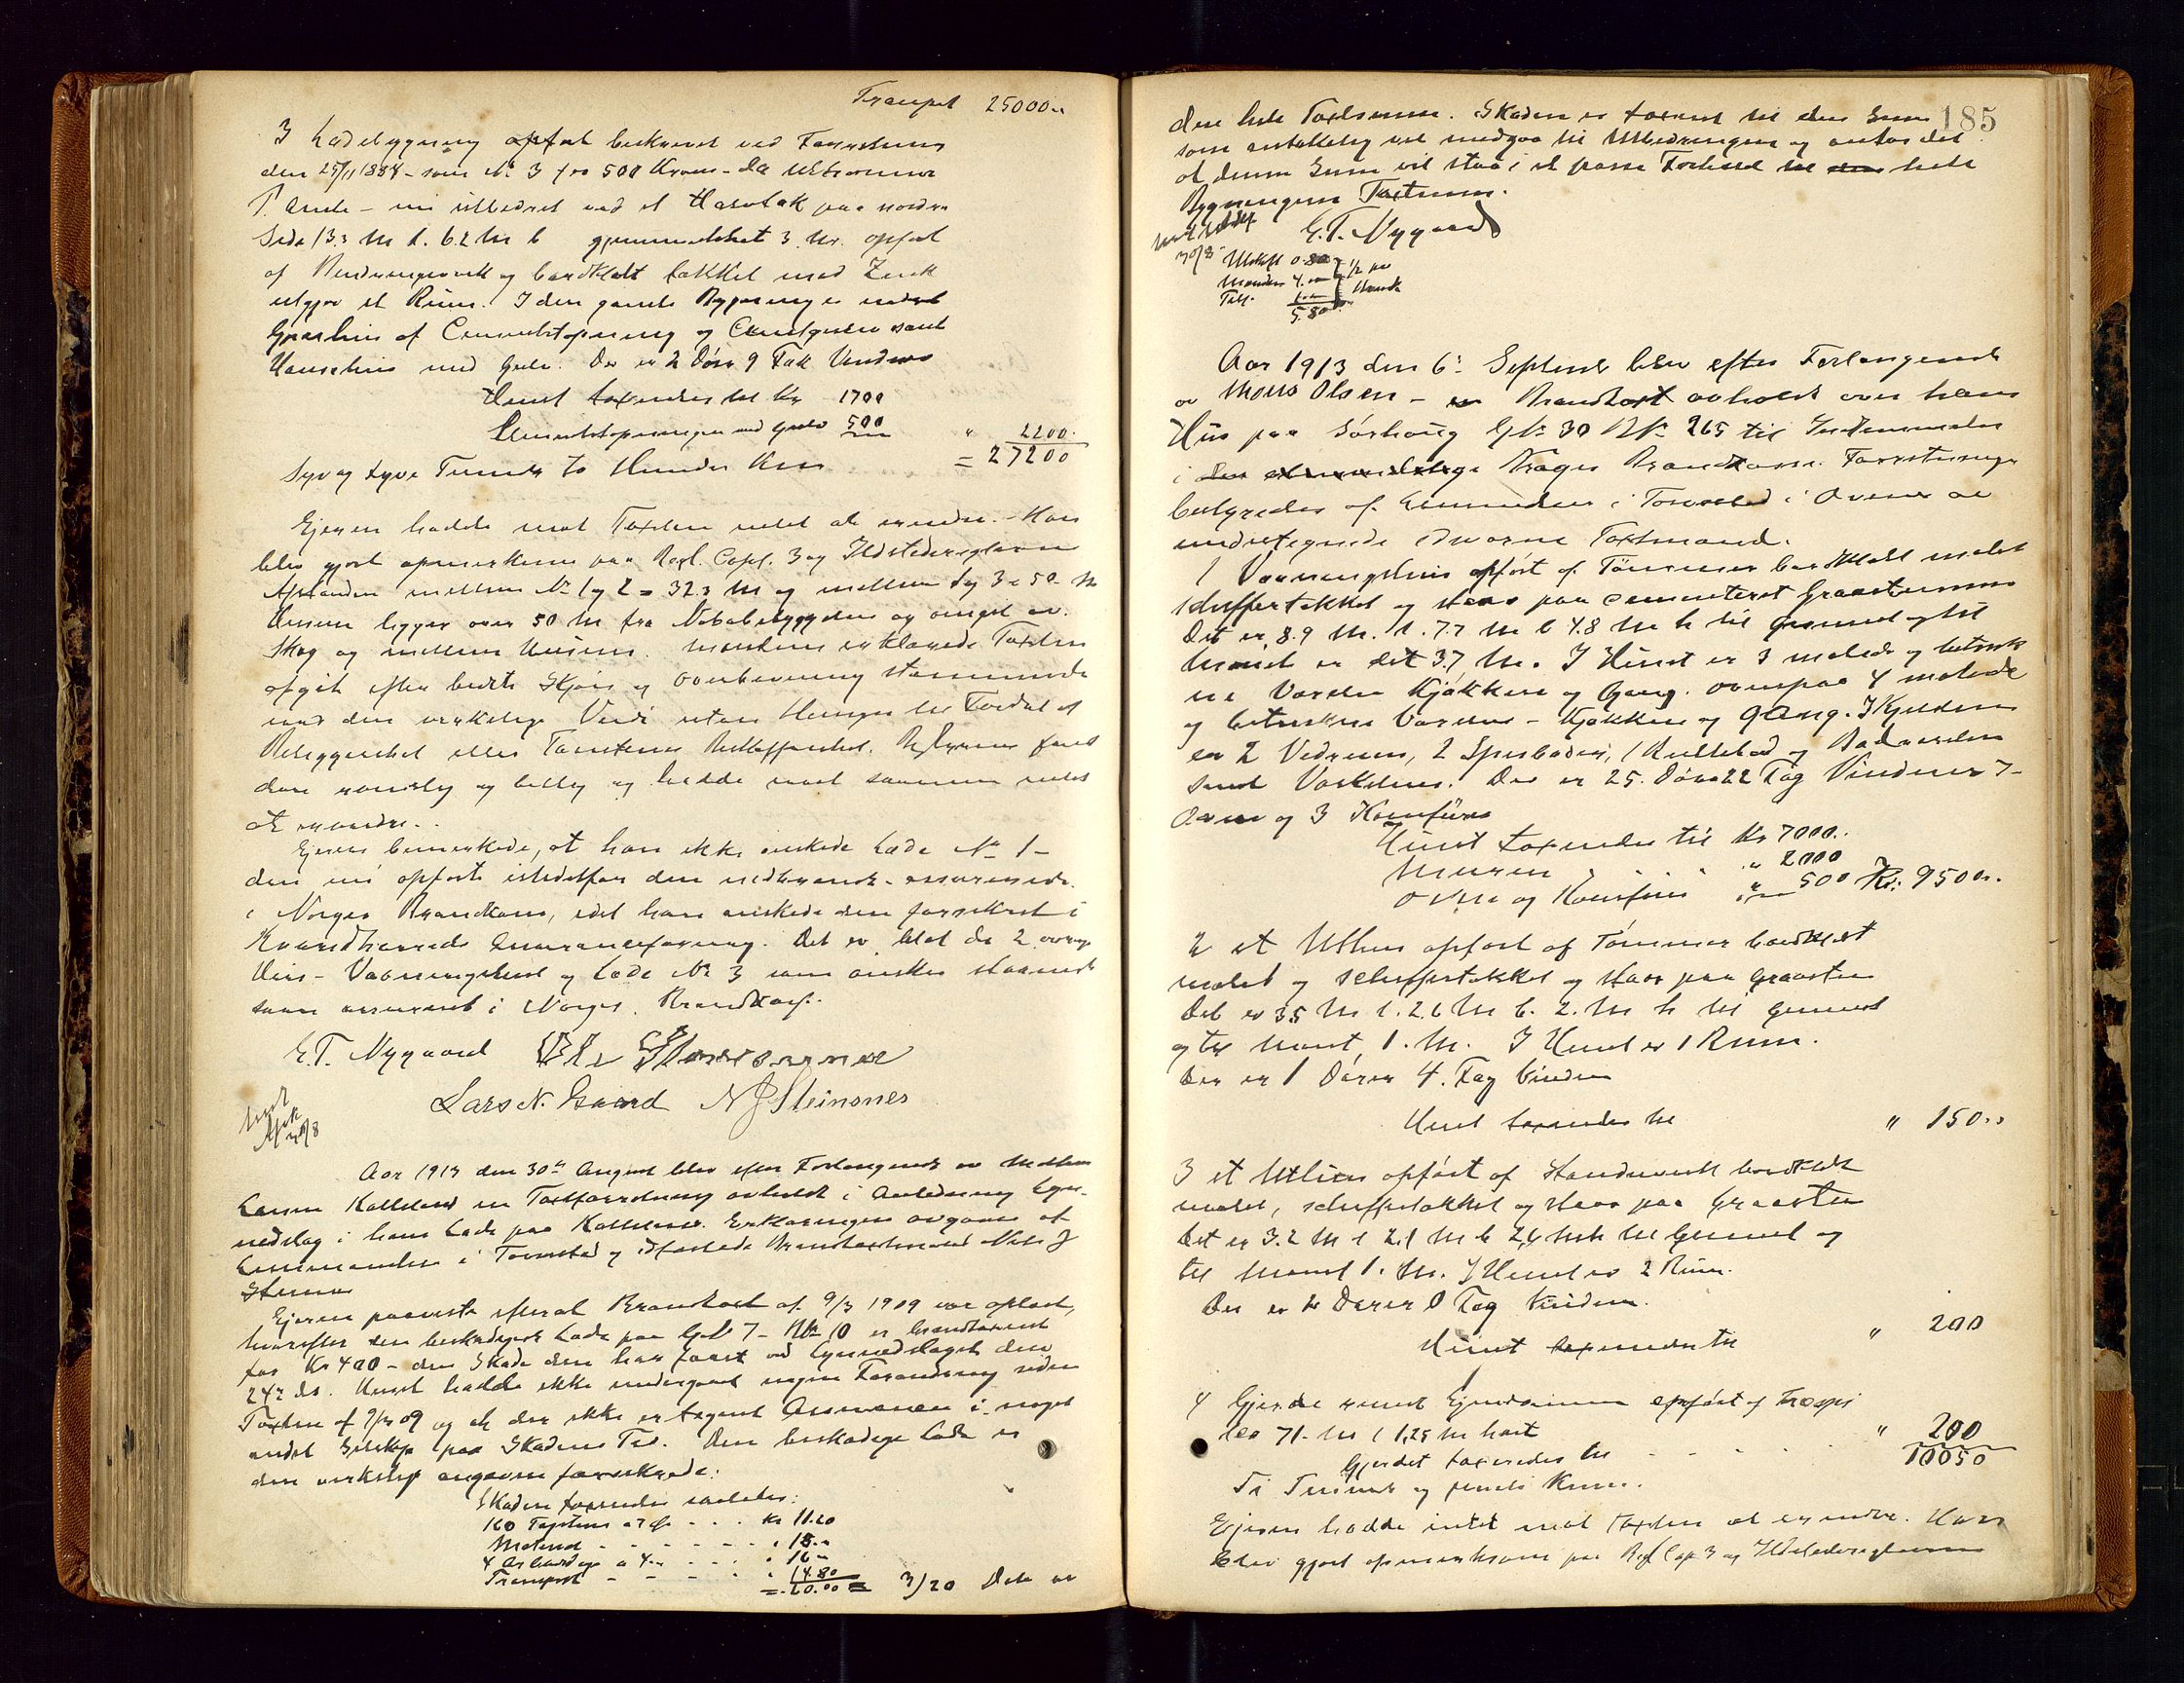 Transport 25000..
3 Ladebygning opført beskrevet ved Taxationen
den 25/11 1884 - som No 3 for 500 Kroner - da
- nu utbedret ved et Halvtak paa nordre
Side 13.3 M l. 6.2 M b gjennemsnitlet 3 M. opført
af Bindingsverk og bordklædt tækket med Zink
utgjør et Rum. I den gamle Bygning er indret
af Cementstøpning og Cementgulv samt
med Gulv. Der er 2 Døre 9 Fag Vinduer
Huset taxeredes til Kr 1700
Cementstøpningen med gulv 500 " 2200.
Syv og tyve Tusinde to Hundre Kroner = 27200
Ejeren hadde mot Taxten intet at erindre. - Han
blev gjort opmerksom paa Regl. Capt. 3 og Ildstedsreglerne
Afstanden mellem No 1 og 2 = 32.3 M og mellem 1 og 3 = 50 M
Husene ligger over 50 M fra Nabobebyggelsen og omgit av
Skog og mellem Husene. Mændene erklærede Taxten
afgit efter bedste Skjøn og Overbevisning stemmende
med den virkelige Verdi uten Hensyn til Fordel af
Beliggenhet eller Tomtens Beskaffenhet. Bestyreren fandt
den rimelig og billig og hadde mot samme intet
at erindre..
Ejeren bemerkede, at han ikke ønskede Lade No 1 -
den nu opførte istedetfor den nedbrændte - assurerede
i Norges Brandkasse, idet han ønskede den forsikret i
Kvindherreds Assuranceforening. Det er blot de 2 øvrige
Hus - Vaaningshuset og Lade No 3 som ønskes staaende
som assureret i Norges Brandkasse.
E.T. Nygaard
Lars N. Gaard N J Steinsnes
sendt
Afsk
30/8
Aar 1913 den 30te August blev efter Forlangende av
Larsen Kalleland en Taxtforretning avholdt i Anledning Lyn-
nedslag i hans Lade paa Kalleland. Erklæringen avgaves af
Lensmanden i Tovestad og edfæstede Brandtaxtmand Nils J
Ejeren paaviste efterat Brandtaxt af 9/3 1909 var oplæst,
hvorefter den beskadigede Lade paa Gno 7 - Bno 10 er brandtaxeret
for Kr 400 - den Skade den har faaet ved Lynnedslaget den
24de ds. Huset hadde ikke undergaaet nogen Forandring siden
Taxten af 9/3 09 og at der ikke er tegnet Assurance i noget
andet Selskap paa Skadens Tid. Den beskadige Lade er
den virkelig angivne forsikrede.
Skaden taxeredes saaledes:
160 Tagsten a 7 Øre - - - Kr 11.20
Material - - - - - - " 18..
4 Arbeidsdage a 4.. - - - " 16..
Transport - - - - - " 14.80
= 60.00 = 3/20 Dele av
185
den hele Taxtsum. Skaden er taxeret til den Sum
som antakelig vil medgaa til Utbedringen og antas det
at denne Sum vil staa i et passe Forhold til hele
Bygningens Taxtsum.
30/8
E.T. Nygaard
Utskrift 0.80
4.00
1/2 paa
5.80
Aar 1913 den 6te September blev efter Forlangende
av Mons Olsen - Brandtaxt avholdt over hans
Hus paa Sørhaug Gno 30 Bno 265 til Indlemmelse
i Norges Brandkasse. Forretningen
bestyredes af Lensmanden i Torvestad i Overvær av
undertegnede edsvorne Taxtmænd.
1 Vaaningshus opført af Tømmer bordklædt malet
skiffertækket og staar paa cementeret Graastensmur
Det er 8.9 M. l. 7.7 M b 4.8 M h til Gesimset og til
Mønet er det 3.7 M. I Huset er 3 malede og betrukk
ne Værelser Kjøkken og Gang. Ovenpaa 4 malede
og betrukne Værelser - Kjøkken og Gang. I Kjelderen
er 2 Vedrum, 2 Spisboder, 1 Rullebod og Badeværelse
samt Vaskehus. Der er 25. Døre 22 Fag Vinduer 7 -
Ovne og 3 Komfurer
Huset taxeredes til Kr 7000..
Muren " " 2000
Ovne og Komfurer " 500 Kr: 9500..
2 et Uthus opført af Tømmer bordklædt
malet og skiffertækket og staar paa Graasten
Det er 3.5 M l. 2.6 M b. 2. M h til Gesimset
og til Mønet 1. M. I Huset er 1 Rum.
Der er 1 Dører 4. Fag Vinduer
Huset taxeredes til " 150..
3 et Uthus opført af Standverk bordklædt
malet, skiffertækket og staar paa Graasten
Det er 3.2 M l 2.1 M b 2,6 M h til Gesimset og
til Mønet 1. M. I Huset er 2 Rum.
Der er 2 Dører 0 Fag Vinduer.
Huset taxeredes til " 200
4 Gjerde rundt Ejendommen opført af Træspi
ler 71. M l 1,25 M høit
Gjerdet taxeredes til - - - - " 200
10050
Ti Tusinde og femti Kroner.
Ejeren hadde intet mot Taxten at erindre. Han
blev gjort opmerksom paa Regl Cap 3 og Ildstedsreglerne